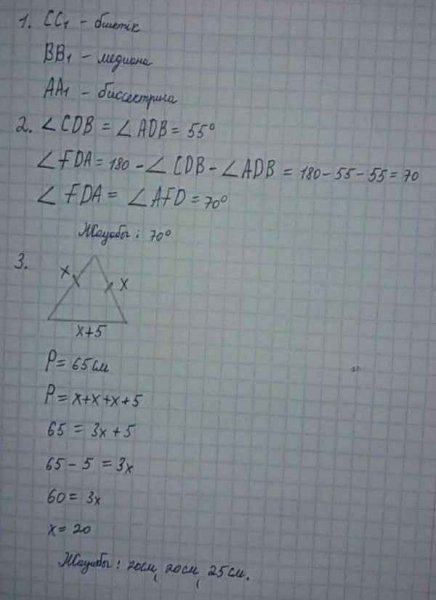 1. CC₁ - биіктік
BB₁ - медиана
AA₁ - биссектриса
2. ∠CDB = ∠ADB = 55°
∠FDA = 180 - ∠CDB - ∠ADB = 180 - 55 - 55 = 70
∠FDA = ∠AFD = 70°
Жауабы: 70°
3.
x x
x+5
P = 65см
P = x+x+x+5
65 = 3x + 5
65 - 5 = 3x
60 = 3x
x = 20
Жауабы: 20см, 20см, 25см.